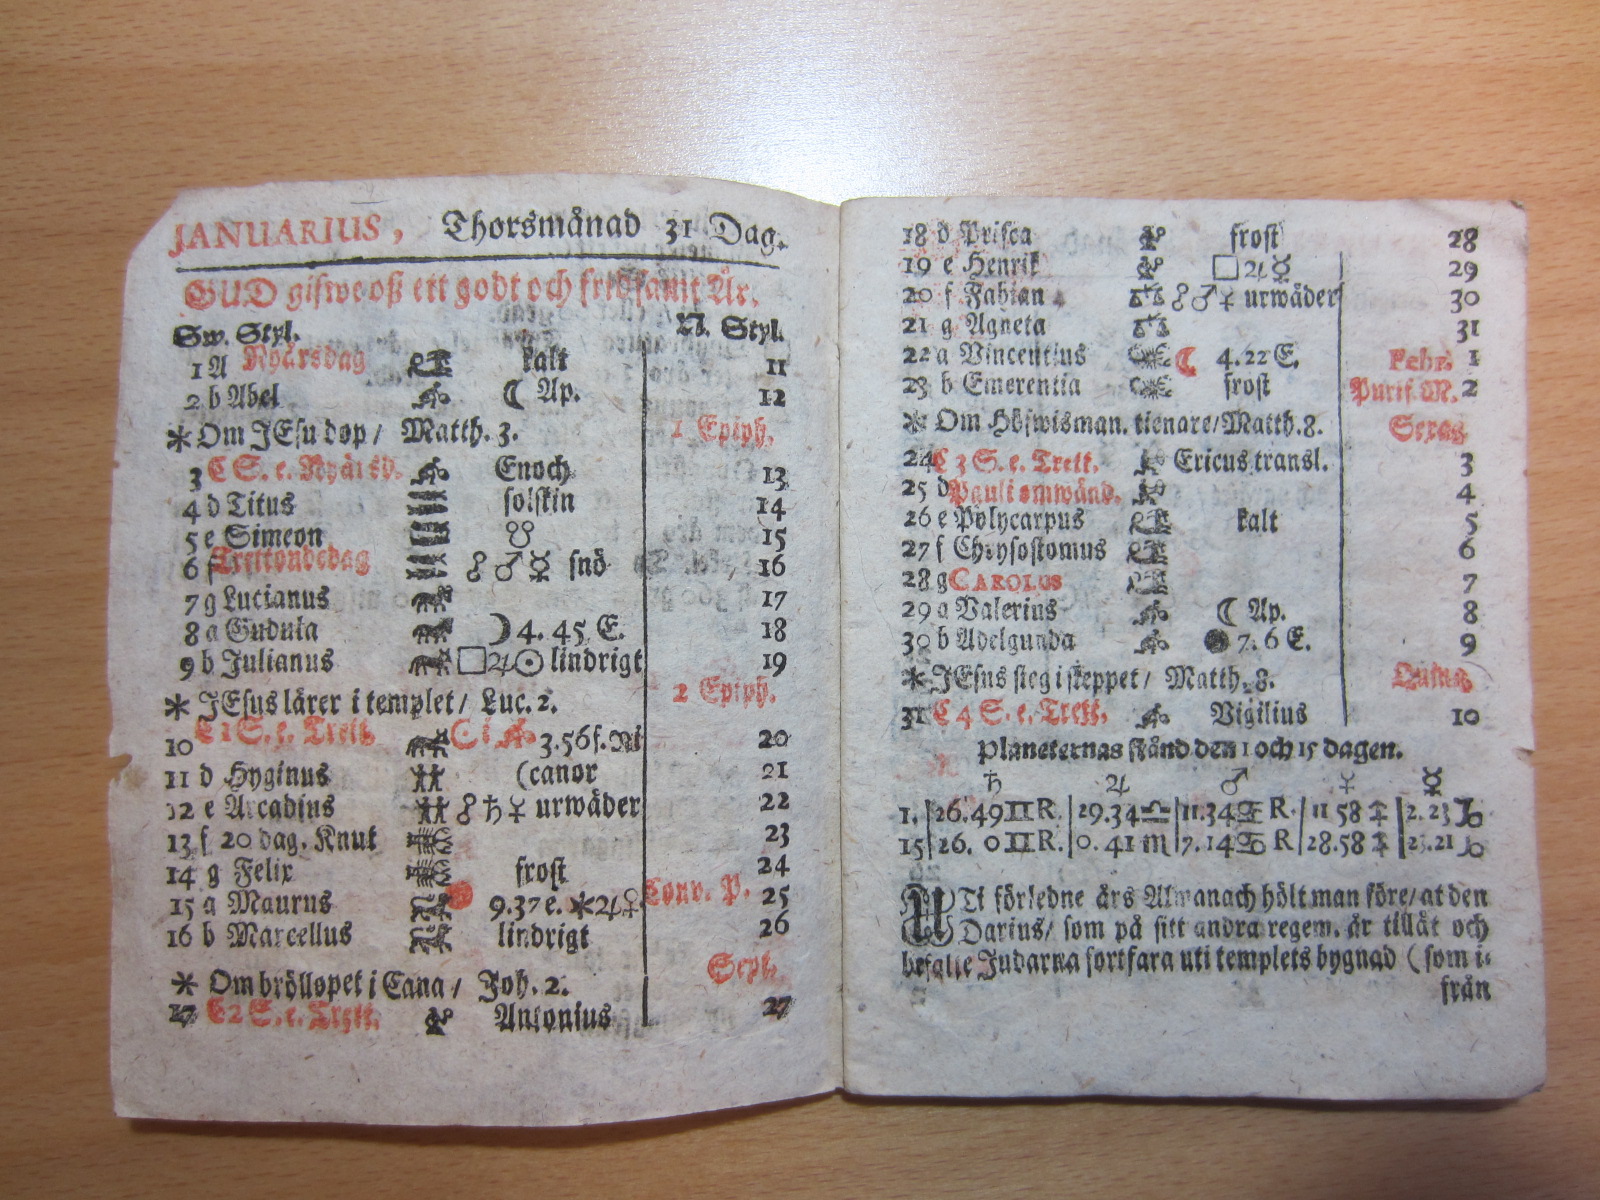 JANUARIUS, Thorsmånad 31 Dag.
GUD gifwe oß ett godt och fridsamt År.
Sw. Styl. N. Styl.
1 A Nyårsdag kalt 11
2 b Abel ☾ Ap. 12
* Om JEsu dop / Matth. 3. 1 Epiph.
3 C S. e. Nyårsd. Enoch 13
4 d Titus solskin 14
5 e Simeon ☋ 15
6 f Trettondedag ☍ ♂ ☿ snö 16
7 g Lucianus 17
8 a Gudula ☽ 4. 45. E. 18
9 b Julianus □ ♃ ☉ lindrigt 19
* JEsus lärer i templet / Luc. 2. 2 Epiph.
10 C 1 S. e. Trett. 3.56 f. Ni 20
11 d Hyginus (canor 21
12 e Arcadius ☍ ♄ ♀ urwäder 22
13 f 20 dag. Knut 23
14 g Felix frost 24
15 a Maurus 9.37 e. * ♃ ♀ Conv. P. 25
16 b Marcellus lindrigt 26
* Om bröllopet i Cana / Joh. 2. Sept.
17 C 2 S. e. Trett. Antonius 27
18 d Prisca frost 28
19 e Henrik □ ♃ ☿ 29
20 f Fabian ☍ ♂ ♀ urwäder 30
21 g Agneta 31
22 a Vincentius ☾ 4. 22 E. Febr. 1
23 b Emerentia frost Purif. M. 2
* Om Höfwisman. tienare / Matth. 8. Sexag.
24 C 3 S. e. Trett. Ericus transl. 3
25 d Pauli omwänd. 4
26 e Polycarpus kalt 5
27 f Chrysostomus 6
28 g CAROLUS 7
29 a Valerius ☾ Ap. 8
30 b Adelgunda ● 7. 6 E. 9
* JEsus steg i skeppet / Matth. 8. Quinq.
31 C 4 S. e. Trett. Vigilius 10
Planeternas stånd den 1 och 15 dagen.
♄ ♃ ♂ ♀ ☿
1. | 26.49 ♊ R. | 29.34 ♎ | 11.34 ♋ R. | 11 58 ♐ | 2. 23 ♑
15 | 26. 0 ♊ R. | 0. 41 ♏ | 7. 14 ♋ R | 28.58 ♐ | 23.21 ♑
UTi förledne års Almanach hölt man före / at den
Darius / som på sitt andra regem. år tillåt och
befalte Judarna fortfara uti templets bygnad ( som i⸗
från